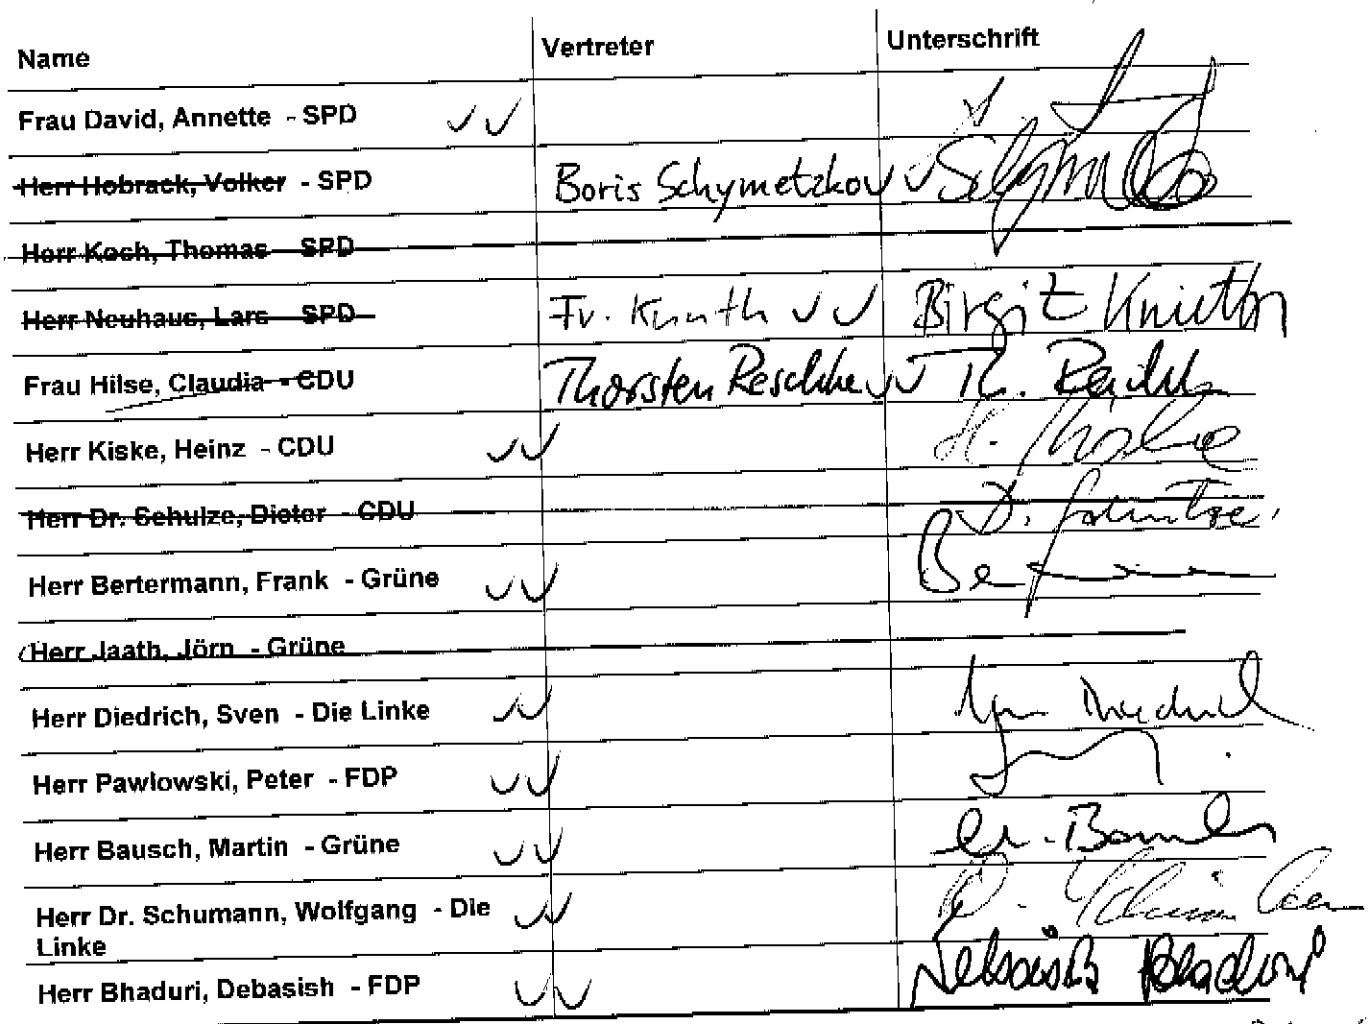 Name Vertreter Unterschrift
Frau David, Annette - SPD
Herr Hobrack, Volker - SPD Boris Schymetzko
Herr Koch, Thomas - SPD
Herr Neuhaus, Lars - SPD Fr. Knuth Birgit Knuth
Frau Hilse, Claudia - CDU Thorsten Reschke Th. Reschke
Herr Kiske, Heinz - CDU H. Kiske
Herr Dr. Schulze, Dieter - CDU D. Schulze
Herr Bertermann, Frank - Grüne
Herr Jaath, Jörn - Grüne
Herr Diedrich, Sven - Die Linke
Herr Pawlowski, Peter - FDP
Herr Bausch, Martin - Grüne
Herr Dr. Schumann, Wolfgang - Die
Linke
Herr Bhaduri, Debasish - FDP Debasish Bhaduri